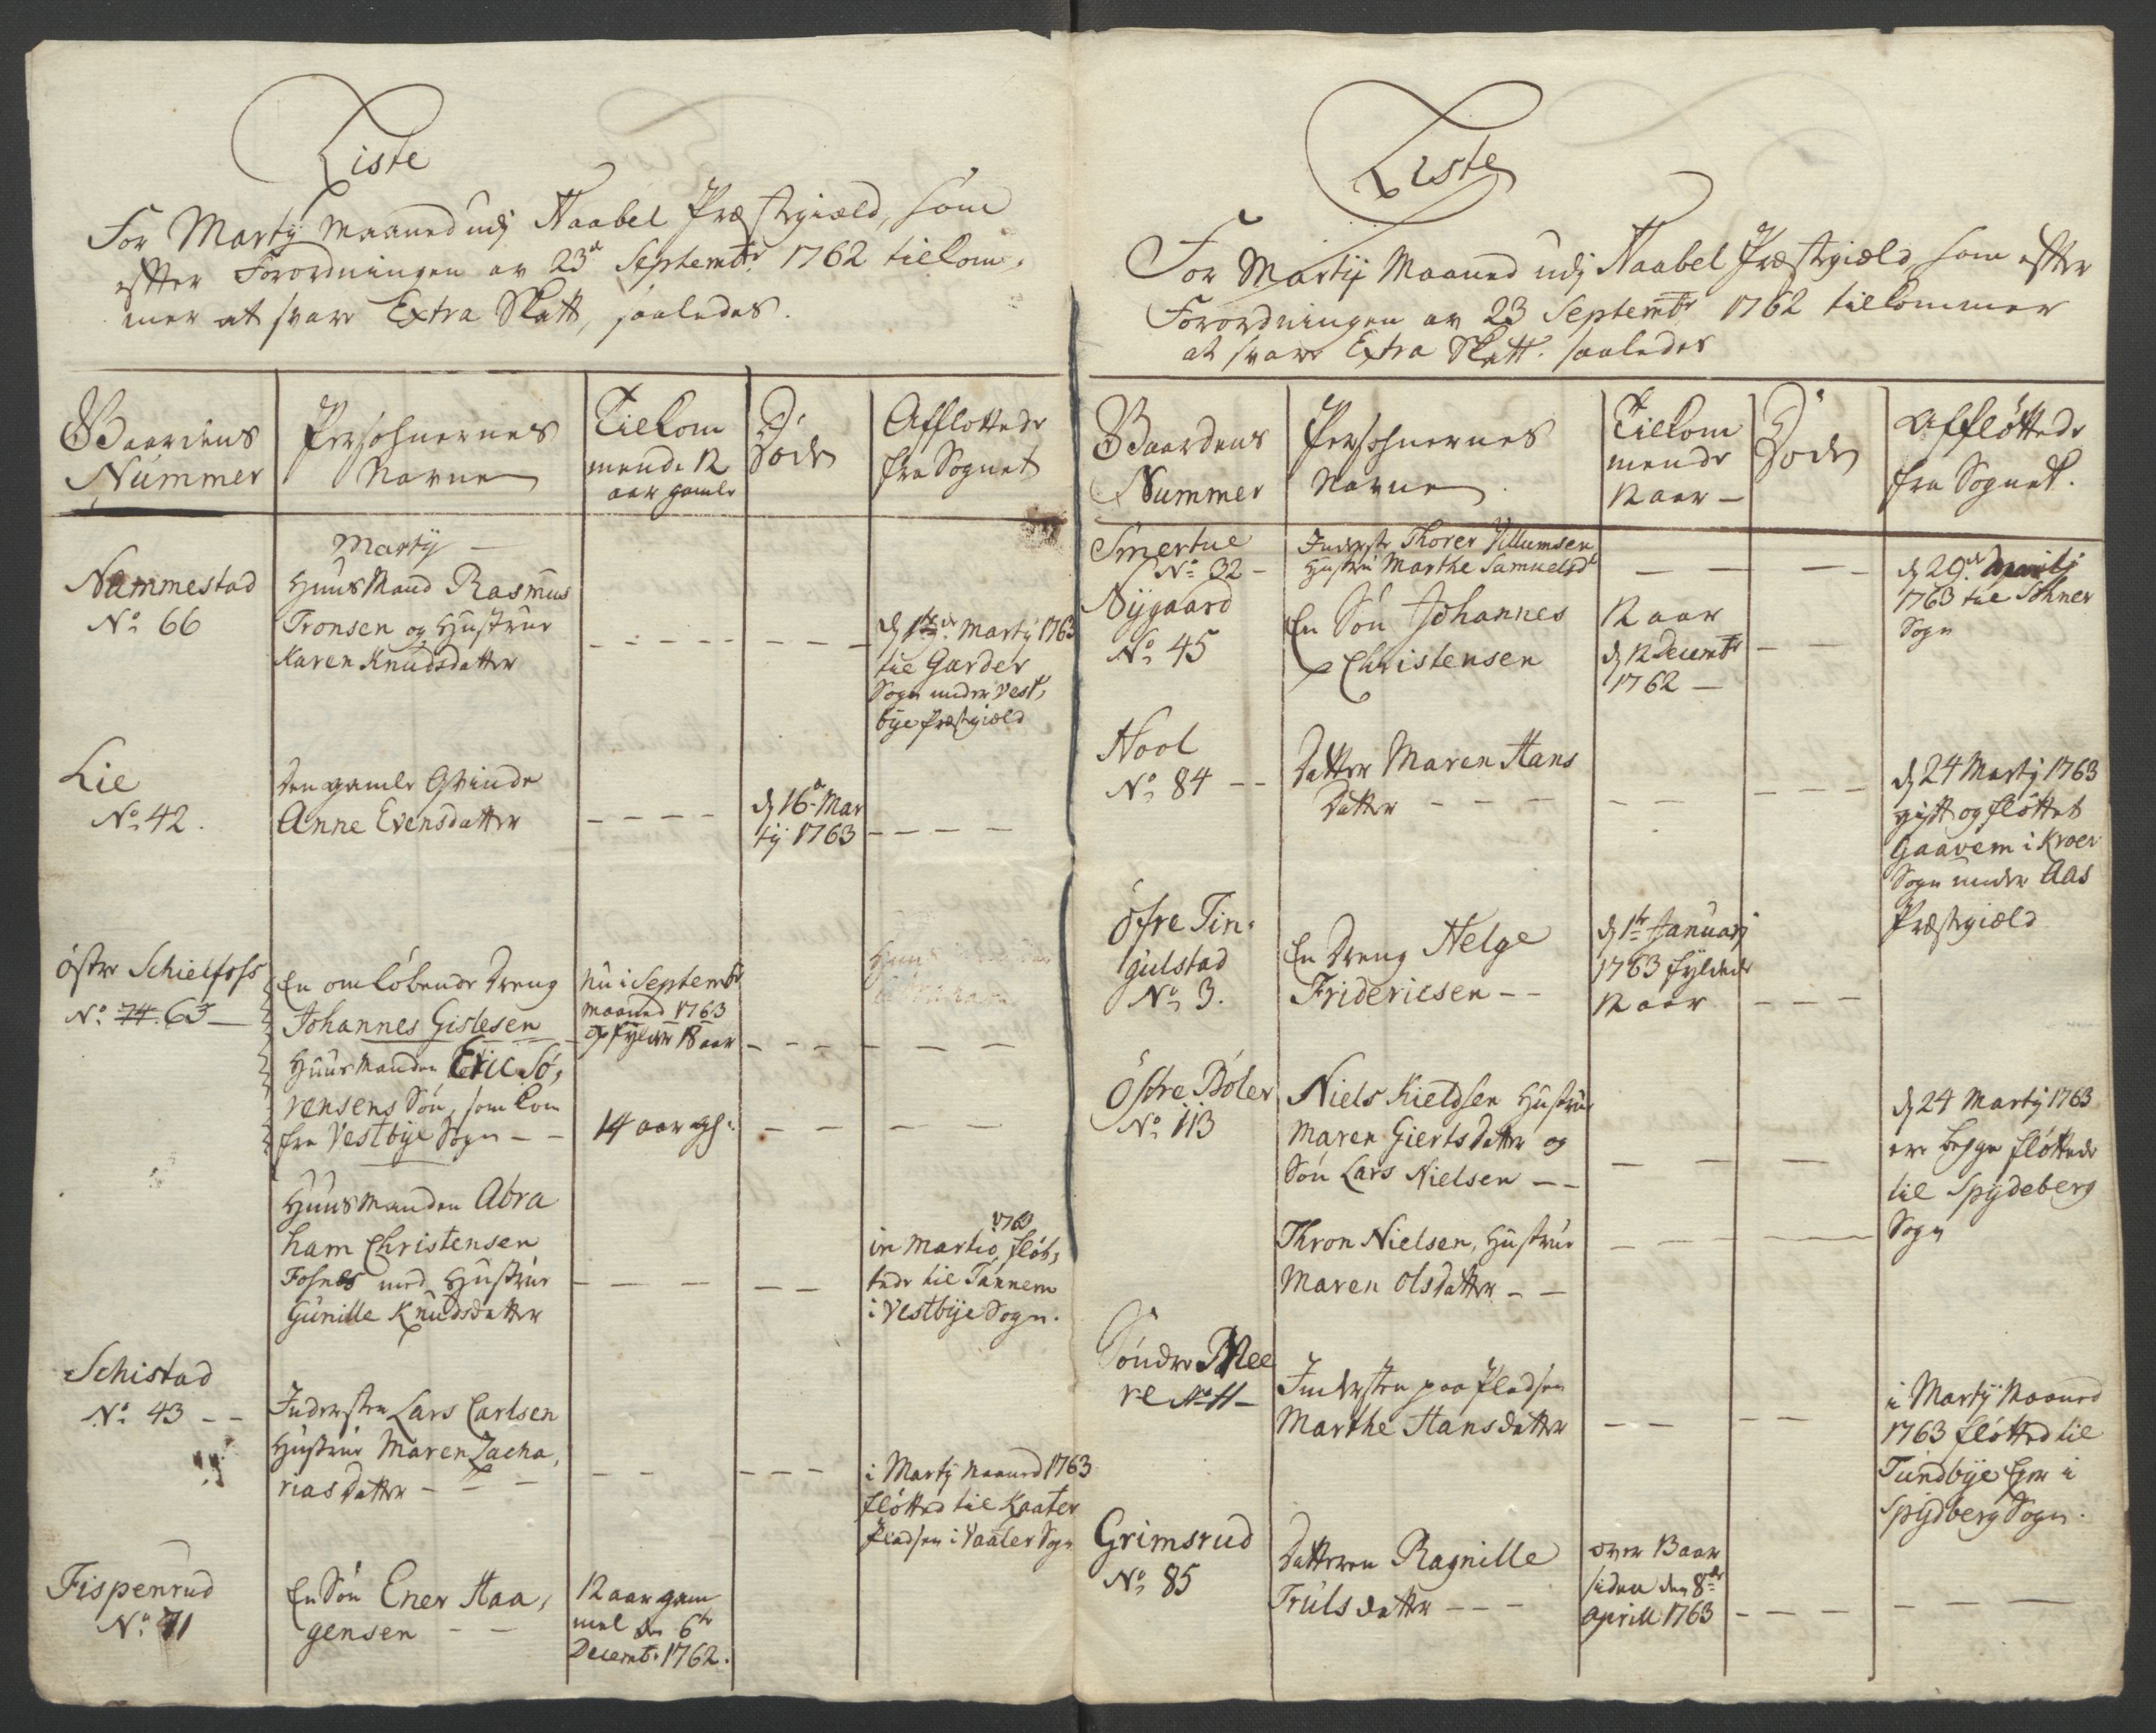 Liste
For Martij Maaned udj Haabel Præstegiæld, som
efter Forordningen av 23de Septembr 1762 tilkom-
mer at svare Extra Skatt, saaledes.
Gaardens
Nummer
Persohnernes
Navne
Tilkom
mende 12
aar gamle
Døde
Afflottede
fra Sognet
Martij —
Nummestad
No 66
Huus Mand Rasmus
Tronsen og Hustrue
Karen Knudsdatter
d 1ste Martij 1763
til Garder
Sogn under Vest-
bye Præstegiæld
Lie
No 42.
Den gamle Qvinde
Anne Evensdatter
d 16de Mar
tij 1763
Østre Schielfoss
No 74. 63 —
En omløbende Dreng
Johannes Gislesen
nu i Septembr
Maaned 1763
opfylder 18 aar
Huusmanden Eric Sø-
rensens Søn, som kom
fra Vestbye Sogn — —
14 aar gl:
Huusmanden Abra
ham Christensen
Fosnes med Hustrue
Gunille Knudsdatter
in Martio 1763 fløt-
tede til Tannem
i Vestbye Sogn.
Schistad
No 43 — —
Indersten Lars Carlsen
Hustrue Maren Zacha-
riasdatter — — —
i Martij Maaned 1763
fløtted til Kaater
Pladsen i Vaaler Sogn
Fispenrud
No 71
En Søn Ener Haa-
gensen — —
12 aar gam
mel den 6te
Decembr 1762.
Liste
For Martij Maaned udj Haabel Præstegiæld, som efter
Forordningen av 23 Septembr 1762 tilkommer
at svare Extra Skatt. saaledes
Gaardens
Nummer
Persohnernes
Navne.
Tilkom
mende
12 aar —
Døde
Affløttede
fra Sognet.
Smertue
No 32 —
Inderste Thorer Villumsen
Hustru Marthe Samuelsd
d 29de
1763 til Sohner
Sogn
Nygaard
No 45
En Søn Johannes
Christensen
12 aar
d 12 Decembr
1762 —
Hool
No 84 — —
Datter Maren Hans
Datter — — —
d 24 Martij 1763
gift og fløttet
Gaavem i Kroer
Sogn under Aas
Præstegiæld
Øfre Tin-
gulstad
No 3.
En Dreng Helge
Fridericsen — —
d 1te Januarj
1763 fyldede
12 aar
Østre Bøler
No 113
Niels Kieldsen Hustrue
Maren Giertsdatter og
Søn Lars Nielsen — —
d 24 Martij 1763
ere begge fløttede
til Spydeberg
Sogn
Thron Nielsen, Hustrue
Maren Olsdatter — —
Søndre Mee
re No 11 —
Indersten paa Pladsen
Marthe Hansdatter
i Martij Maaned
1763 fløtted til
Tundbye Eyer i
Spydberg Sogn.
Grimsrud
No 85
Datteren Ragnille
Trulsdatter — — —
over 13 aar
siden den 8de
Aprill 1763